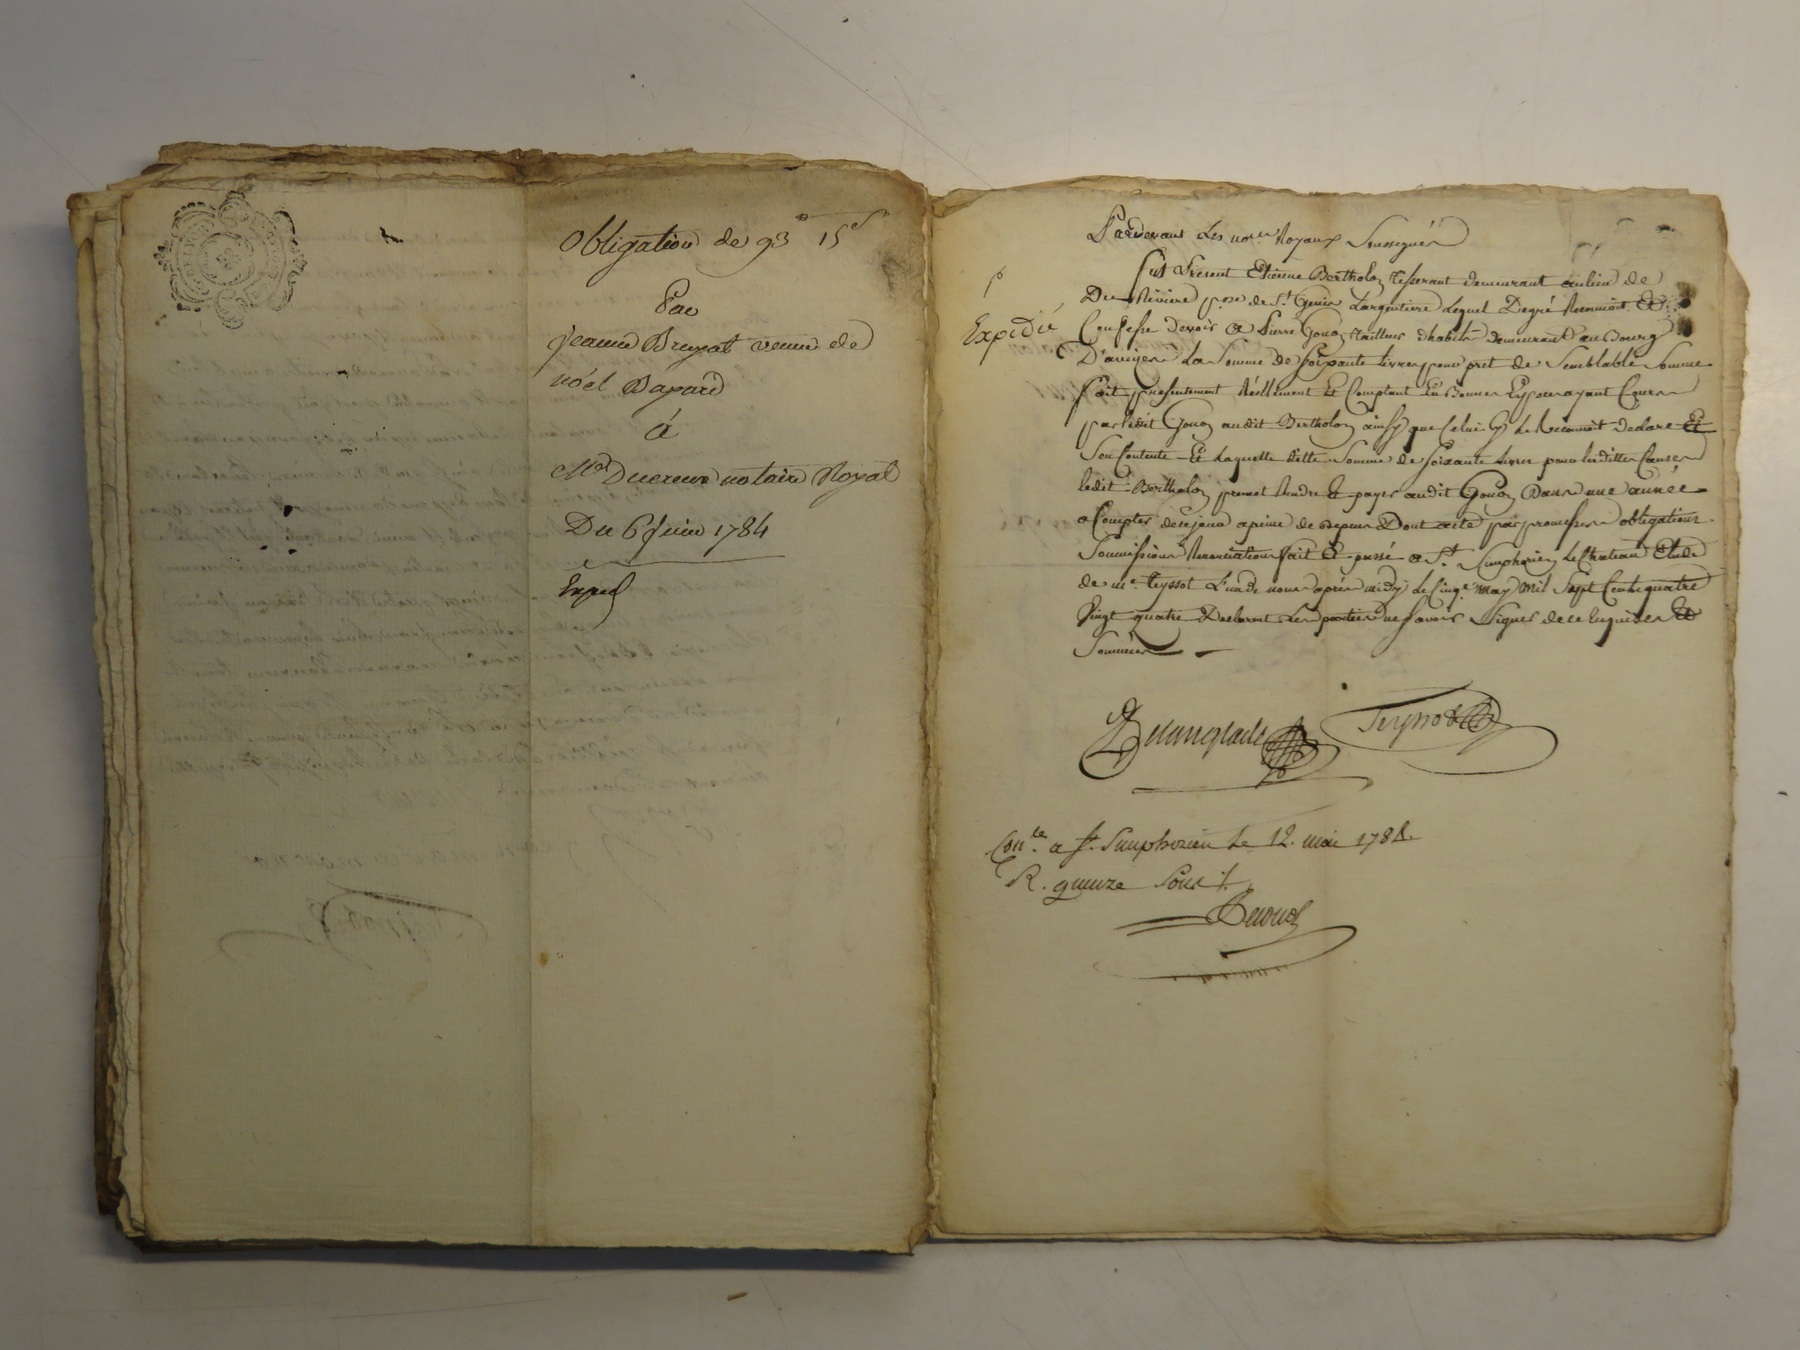 Obligation de 93# 15s
Par
jeanne Bruyat veuve de
noél Bapard
á
Me Ducreux notaire Royal
Du 6 juin 1784
Exped
Pardevant Les nores Royaux Soussignés
fut Present Etienne Bertholon tisserant demeurant au lieu de
Expedié
De Riviere psse de St Genis Largentiere Lequel De gré Reconnoit Et
Confesse devoir a Pierre Gouon tailleur d'habits Demeurant au Bourg
D'aveizes La Somme de soixante livres pour pret de Semblable Somme
fait presentement Réellement Et Comptant En Bonnes Especes ayant Cours
par ledit Gouon audit Bertholon ainsy que Celui Cy Le Reconnoit declare Et
S'en Contente Et Laquelle ditte Somme de soixante livres pour lesdittes Causes
ledit Bertholon promet Rendre Et payer audit Gouon Dans une année
a Compter de ce jour a peine de depens Dont acte par promesses obligations
Soumissions Renonciations fait Et passé a St Simphorien Le Chateau Etude
de me teyssot L'un de nous après midy Le Cinqe may Mil Sept Cent quatre
Vingt quatre Declarent Les parties ne savoir Signer de ce Enquises Et
Sommées
Delanglade Teyssot
Conlé a St. Simphorien Le 12. mai 1784
R. quinze Sous